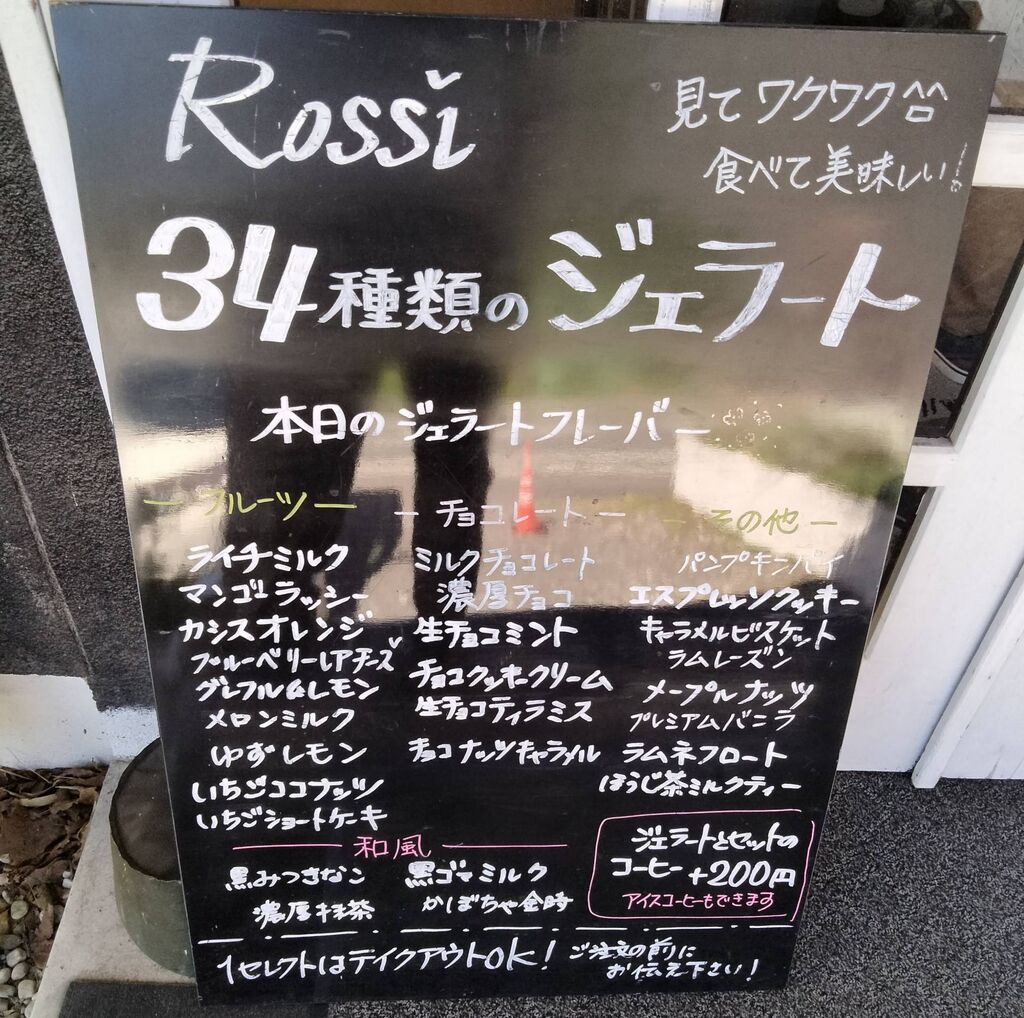 Rossi
見てワクワク
食べて美味しい!
34種類のジェラート
本日のジェラートフレーバー
ーフルーツー
ライチミルク
マンゴーラッシー
カシスオレンジ
ブルーベリーレアチーズ
グレフル&レモン
メロンミルク
ゆずレモン
いちごココナッツ
いちごショートケーキ
ーチョコレートー
ミルクチョコレート
濃厚チョコ
生チョコミント
チョコクッキークリーム
生チョコティラミス
チョコナッツキャラメル
ーその他ー
パンプキンパイ
エスプレッソクッキー
キャラメルビスケット
ラムレーズン
メープルナッツ
プレミアムバニラ
ラムネフロート
ほうじ茶ミルクティー
和風
黒みつきなこ
黒ゴマミルク
濃厚抹茶
かぼちゃ金時
ジェラートとセットの
コーヒー+200円
アイスコーヒーもできます
1セレクトはテイクアウトOK!
ご注文の前に
お伝え下さい!